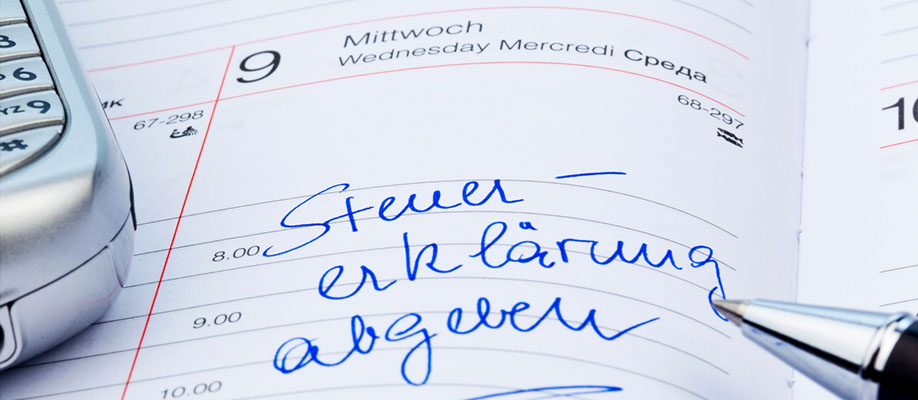 9
Mittwoch
Wednesday Mercredi Среда
67-298
68-297
Steuer –
8.00
erklärung
9.00
abgeben
10.00
8
6
9
#
10